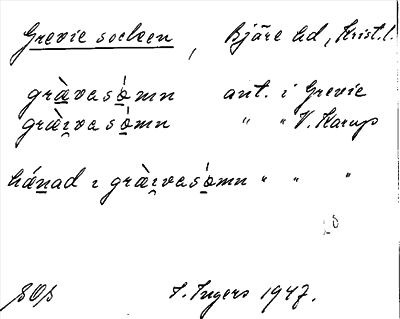 Grevie socken, Bjäre hd, Krist. l.
gràvasómn ant. i Grevie
gràivasómn " " V. Karup
hánad i gràivasómn " " "
SOS I. Ingers 1947.